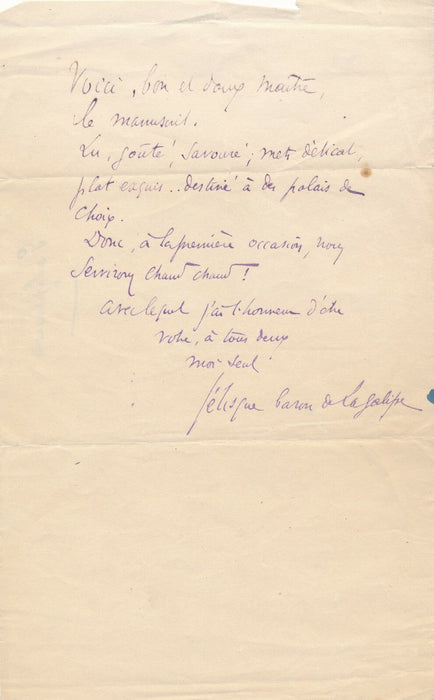 Voici, bon et doux maître,
le manuscrit.
Lu, goûté, savouré, mets délicat,
plat exquis.. destiné à des palais de
choix.
Donc, à la première occasion, nous
servirons chaud chaud !
avec lequel j'ai l'honneur d'être
votre, à tous deux
moi seul
baron de Lagalipe